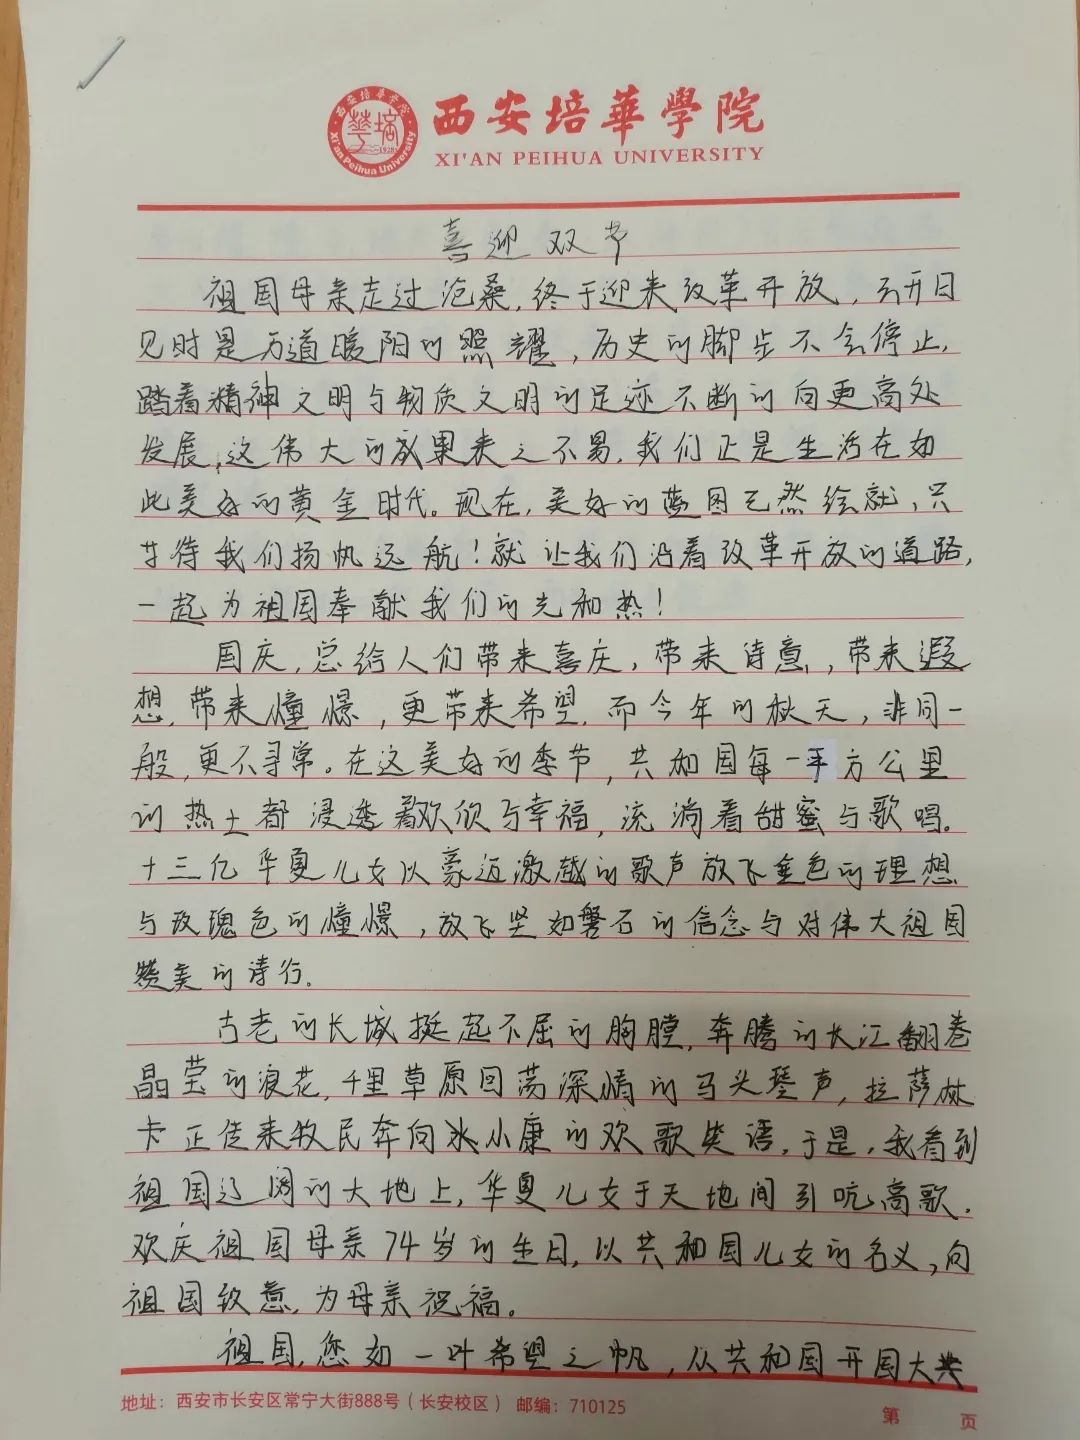 西安培華學院
XI'AN PEIHUA UNIVERSITY
西安培华学院
Xi'an Peihua University
1928
喜迎双节
祖国母亲走过沧桑，终于迎来改革开放，云开日
见时是万道暖阳的照耀，历史的脚步不会停止，
踏着精神文明与物质文明的足迹不断的向更高处
发展，这伟大的成果来之不易，我们正是生活在如
此美好的黄金时代。现在，美好的蓝图已然绘就，只
等待我们扬帆远航！就让我们沿着改革开放的道路，
一起为祖国奉献我们的光和热！
国庆，总给人们带来喜庆，带来诗意，带来遐
想，带来憧憬，更带来希望，而今年的秋天，非同一
般，更不寻常。在这美好的季节，共和国每一平方公里
的热土都浸透着欢欣与幸福，流淌着甜蜜与歌唱。
十三亿华夏儿女以豪迈激越的歌声放飞金色的理想
与玫瑰色的憧憬，放飞坚如磐石的信念与对伟大祖国
赞美的诗行。
古老的长城挺起不屈的胸膛，奔腾的长江翻卷
晶莹的浪花，千里草原回荡深情的马头琴声，拉萨林
卡正传来牧民奔向小康的欢歌笑语，于是，我看到
祖国辽阔的大地上，华夏儿女于天地间引吭高歌，
欢庆祖国母亲74岁的生日，以共和国儿女的名义，向
祖国致意，为母亲祝福。
祖国，您如一叶希望之帆，从共和国开国大
地址：西安市长安区常宁大街888号（长安校区） 邮编：710125
第 页